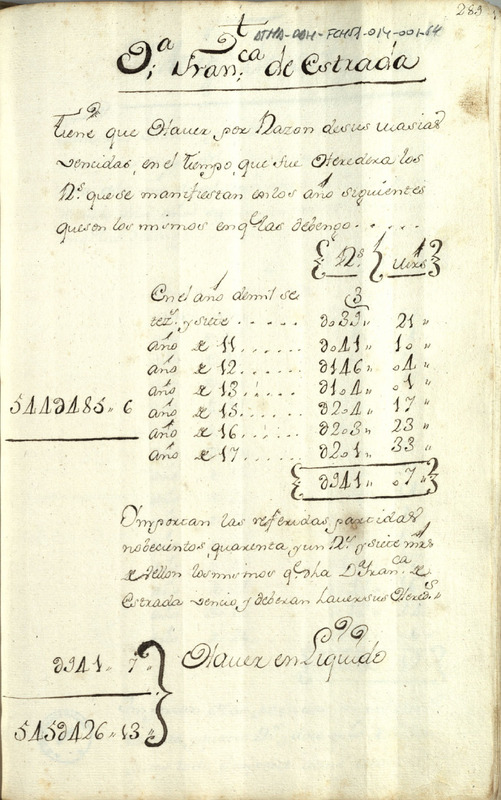 289
ATHA-DAH-FCHSA-014-001-64
D.ª Fran.ca de Estrada
Tiene que Haver por Razon de sus masias
vencidas, en el tiempo, que fue Heredera los
R.s que se manifiestan en los año siguientes
que son los mismos en q.e las debengo. . . . .
R.s mrs
En el año de mil se
tez.s y siete . . . . . d039,, 21,,
año de 11 . . . . . . d041,, 10,,
año de 12 . . . . . . d146,, 04,,
año de 13 . . . . . . d104,, 01,,
544d485,, 6
año de 15 . . . . . . d204,, 17,,
año de 16 . . . . . . d203,, 23,,
año de 17 . . . . . . d201,, 33,,
d941,, 07,,
Ymportan las referidas partidas
nobecientos quarenta y un R.s y siete mrs
de Vellon los mismos q.e dha D.ª Fran.ca de
Estrada vencio y deberan haver sus Hered.s
d941,, 7,,
Haver en Liquido
545d426,, 13,,